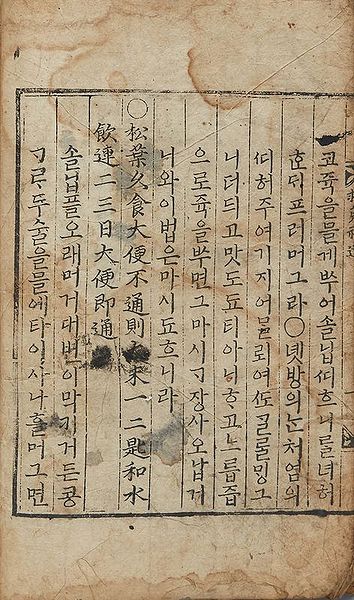 코쥭을믈게ᄡᅮ어솔닙ᄯᅵᄒᆞ니ᄅᆞᆯ녀허
ᄒᆞᆫᄃᆡ프러머그라○녯방의ᄂᆞᆫ처엄의
ᄯᅵ허주여기지어믈로여 ᄆᆡᆼᄀᆞ
니더듸고맛도됴티아니ᄒᆞ고느릅즙
으로쥭을ᄡᅮ면그마시ᄀᆞ장사오납거
니와이법은마시됴ᄒᆞ니라
○松葉久食大便不通則 末一二匙和水
飮連二三日大便即通
솔닙플오래머거대변이막키거든콩
ᄀᆞᄅᆞ두술을믈에타이사나ᄒᆞᆯ머그면